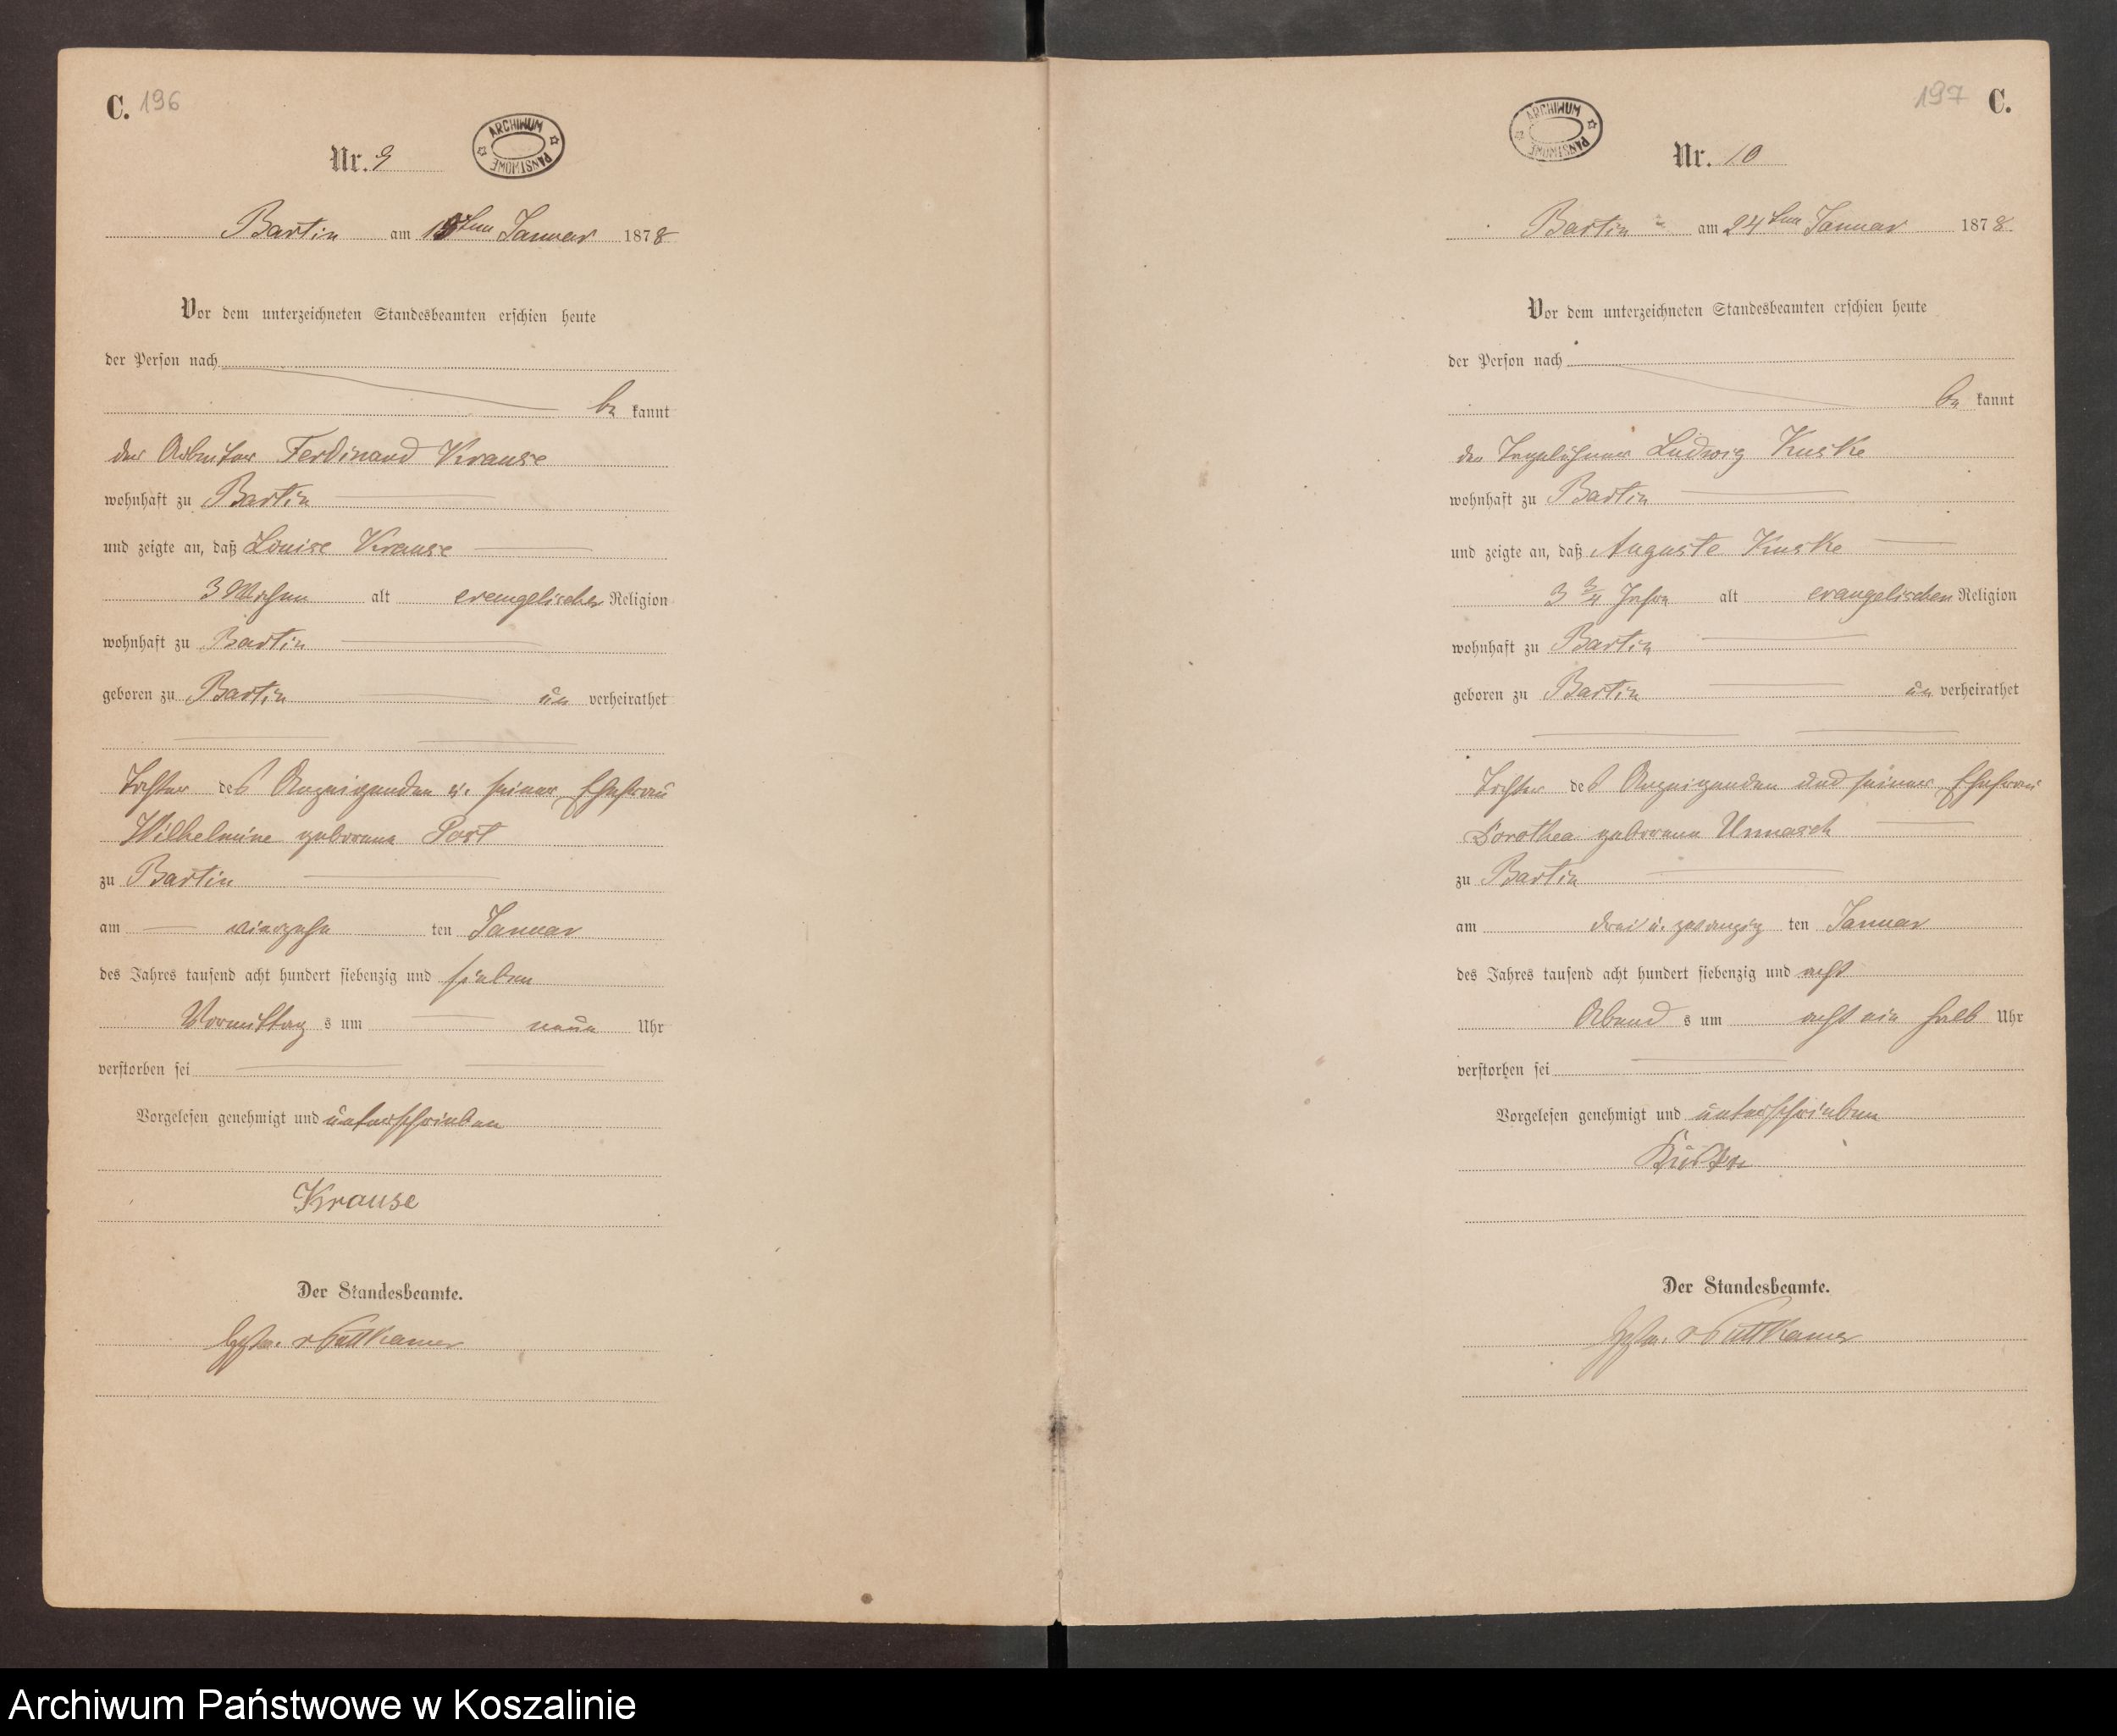 C. 196
ARCHIWUM PAŃSTWOWE
Nr. 9
Bartin am 15ten Januar 1878
Vor dem unterzeichneten Standesbeamten erschien heute
der Person nach
be kannt
der Arbeiter Ferdinand Krause
wohnhaft zu Bartin
und zeigte an, daß Louise Krause
3 Wochen alt evangelischer Religion
wohnhaft zu Bartin
geboren zu Bartin un verheirathet
Tochter des Anzeigenden u. seiner Ehefrau
Wilhelmine geborene Post
zu Bartin
am vierzehn ten Januar
des Jahres tausend acht hundert siebenzig und sieben
Vormittag s um neun Uhr
verstorben sei
Vorgelesen genehmigt und unterschrieben
Krause
Der Standesbeamte.
v Puttkamer
197 C.
ARCHIWUM PAŃSTWOWE
Nr. 10
Bartin am 24ten Januar 1878
Vor dem unterzeichneten Standesbeamten erschien heute
der Person nach
be kannt
der Tagelöhner Ludwig Kuske
wohnhaft zu Bartin
und zeigte an, daß Auguste Kuske
3 3/4 Jahre alt evangelischen Religion
wohnhaft zu Bartin
geboren zu Bartin un verheirathet
Tochter des Anzeigenden und seiner Ehefrau
Dorothea geborene Unnasch
zu Bartin
am drei u. zwanzig ten Januar
des Jahres tausend acht hundert siebenzig und acht
Abend s um acht ein halb Uhr
verstorben sei
Vorgelesen genehmigt und unterschrieben
Kuske
Der Standesbeamte.
v Puttkamer
Archiwum Państwowe w Koszalinie